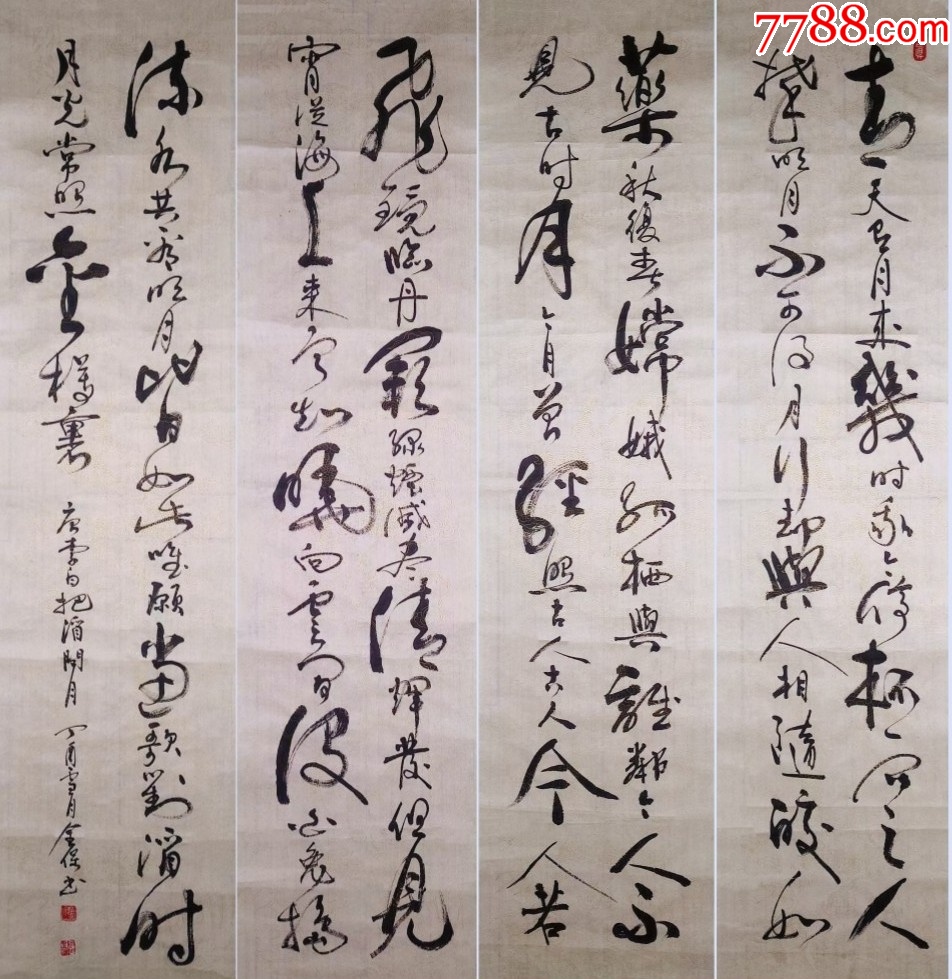 7788.com
青天有月來幾時我今停杯一問之人
攀明月不可得月行却與人相隨皎如
藥秋復春嫦娥孤栖與誰鄰今人不
見古時月今月曾經照古人古人今人若
飛鏡臨丹闕綠煙滅盡清輝發但見
宵從海上來寧知曉向雲間沒白兔搗
流水共看明月皆如此唯願當歌對酒時
月光常照金樽裏 唐李白把酒問月 丁酉雪月金保書